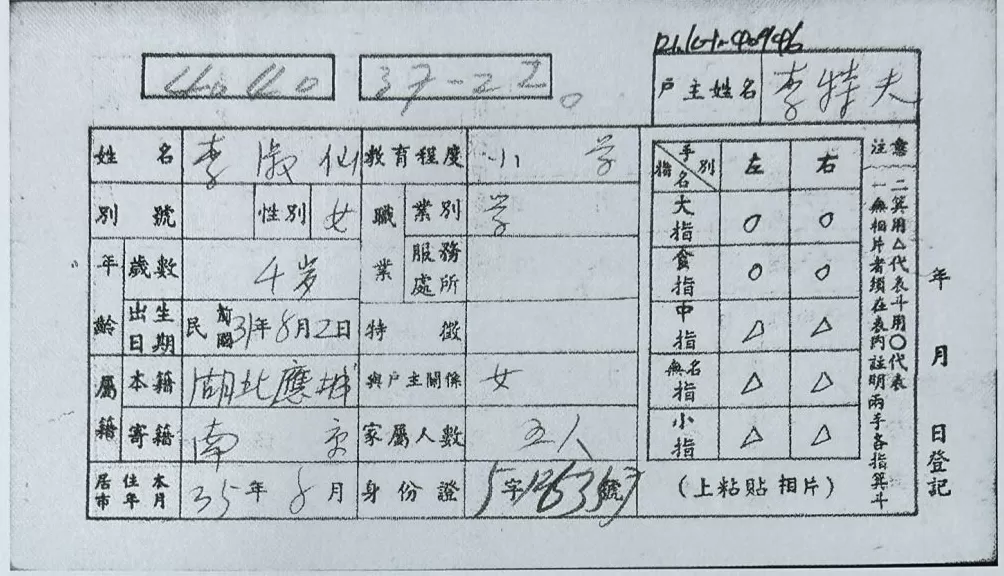 4040 37-22
戶主姓名 李特夫
姓名 李淑仙 教育程度 小學
別號 性別 女 職業 業別 學
年齡 歲數 4岁 服務處所
出生日期 民前國31年8月2日 特徵
屬籍 本籍 湖北應城 與戶主關係 女
寄籍 南京 家屬人數 五人
居住本市年月 35年8月 身份證 字 號
手別 指名 左 右
大指 ○ ○
食指 ○ ○
中指 △ △
無名指 △ △
小指 △ △
(上粘貼相片)
注意
一無相片者須在表內註明兩手各指箕斗
二箕用△代表斗用○代表
年 月 日登記